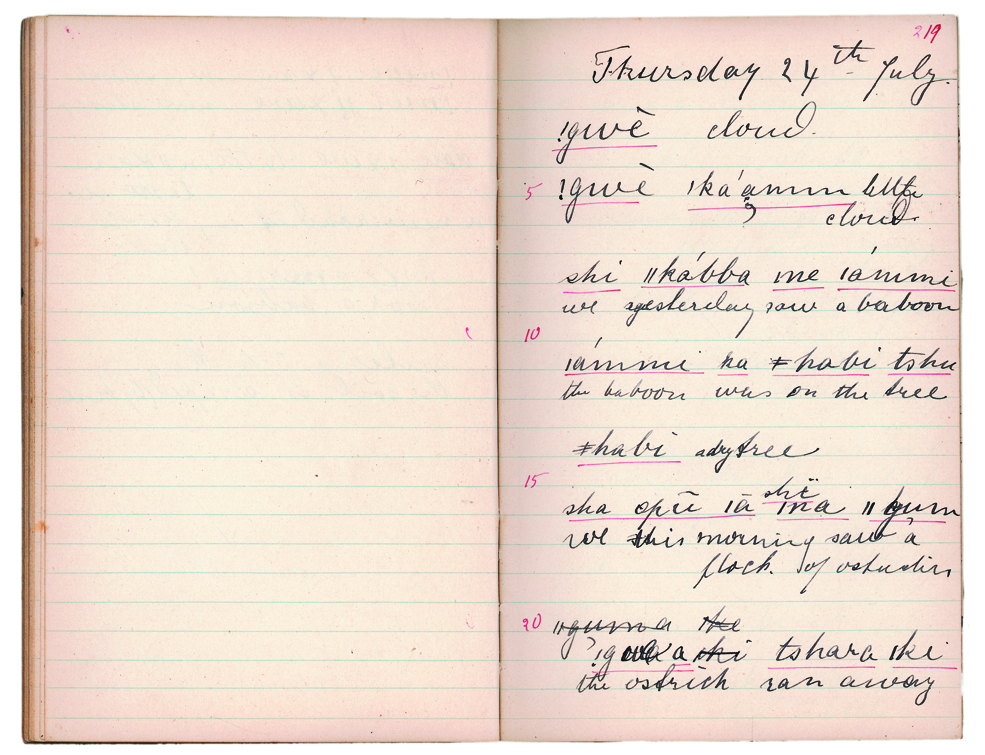 219
Thursday 24th July.
!gwē cloud.
5 !gwē ǀká'amm little
cloud.
shi ǁkábba ǀne ǀámmi
we yesterday saw a baboon
10
ǀámmi ka ǂhabi tshu
the baboon was on the tree
ǂhabi a dry tree
15
shë
sha ǀā ǀna ǁgum
we this morning saw a
flock. of ostriches
20 ǁguma
a tshara ǀki
the ostrich ran away